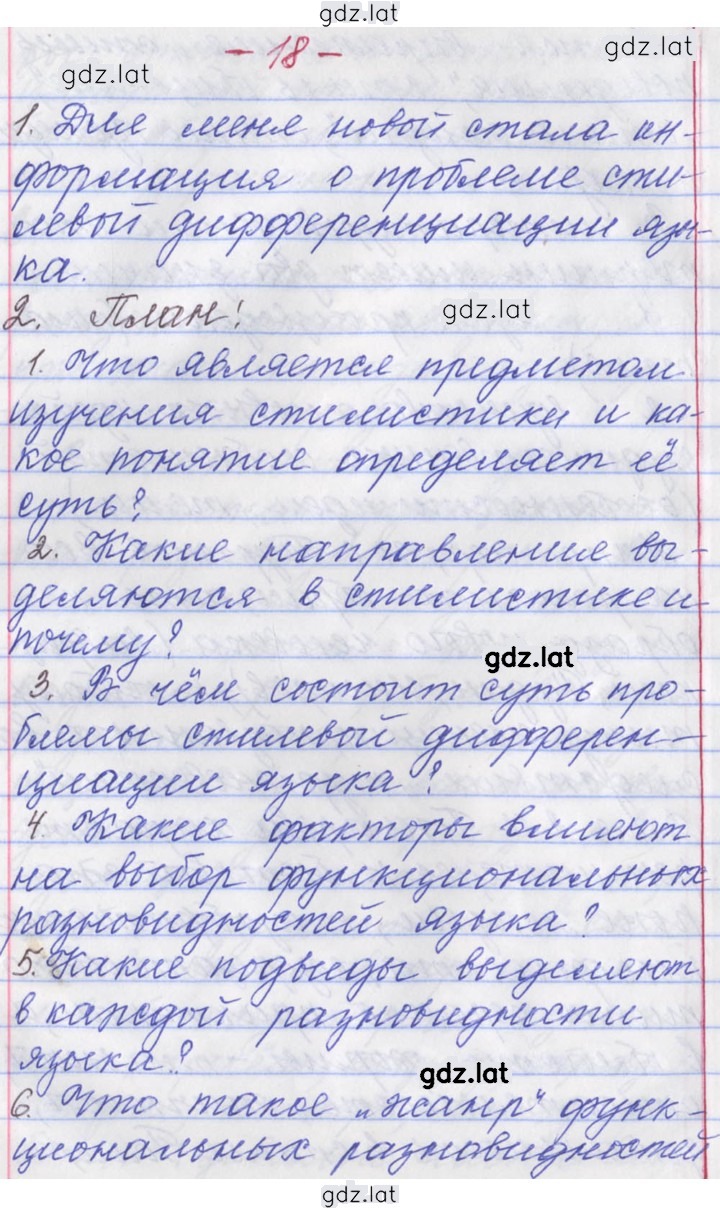 gdz.lat
- 18 -
gdz.lat
gdz.lat
1. Для меня новой стала ин-
формация о проблеме сти-
левой дифференциации язы-
ка.
2. План:
gdz.lat
1. Что является предметом
изучения стилистики и ка-
кое понятие определяет её
суть?
2. Какие направления вы-
деляются в стилистике и
почему?
gdz.lat
3. В чём состоит суть про-
блемы стилевой дифферен-
циации языка?
4. Какие факторы влияют
на выбор функциональных
разновидностей языка?
5. Какие подвиды выделяют
в каждой разновидности
языка?
gdz.lat
6. Что такое „жанр“ функ-
циональных разновидностей
gdz.lat